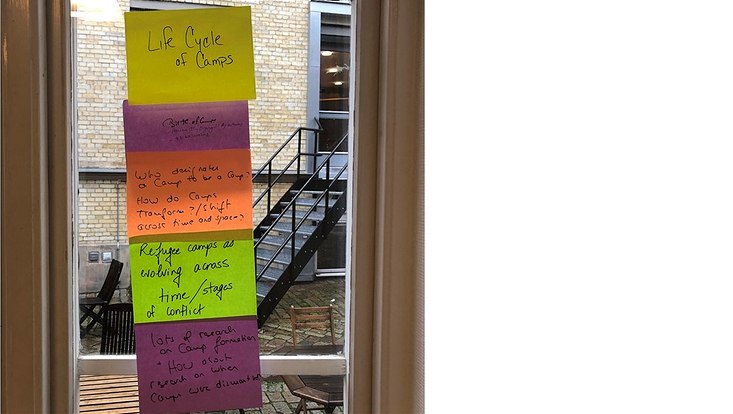 Life Cycle
of Camps
Birth of Camps
Who designates
a Camp to be a Camp?
How do Camps
transform?/Shift
across time and space?
Refugee camps as
evolving across
time/stages
of conflict
lots of research
on Camp formation
• How about
research on when
Camps were dismantled